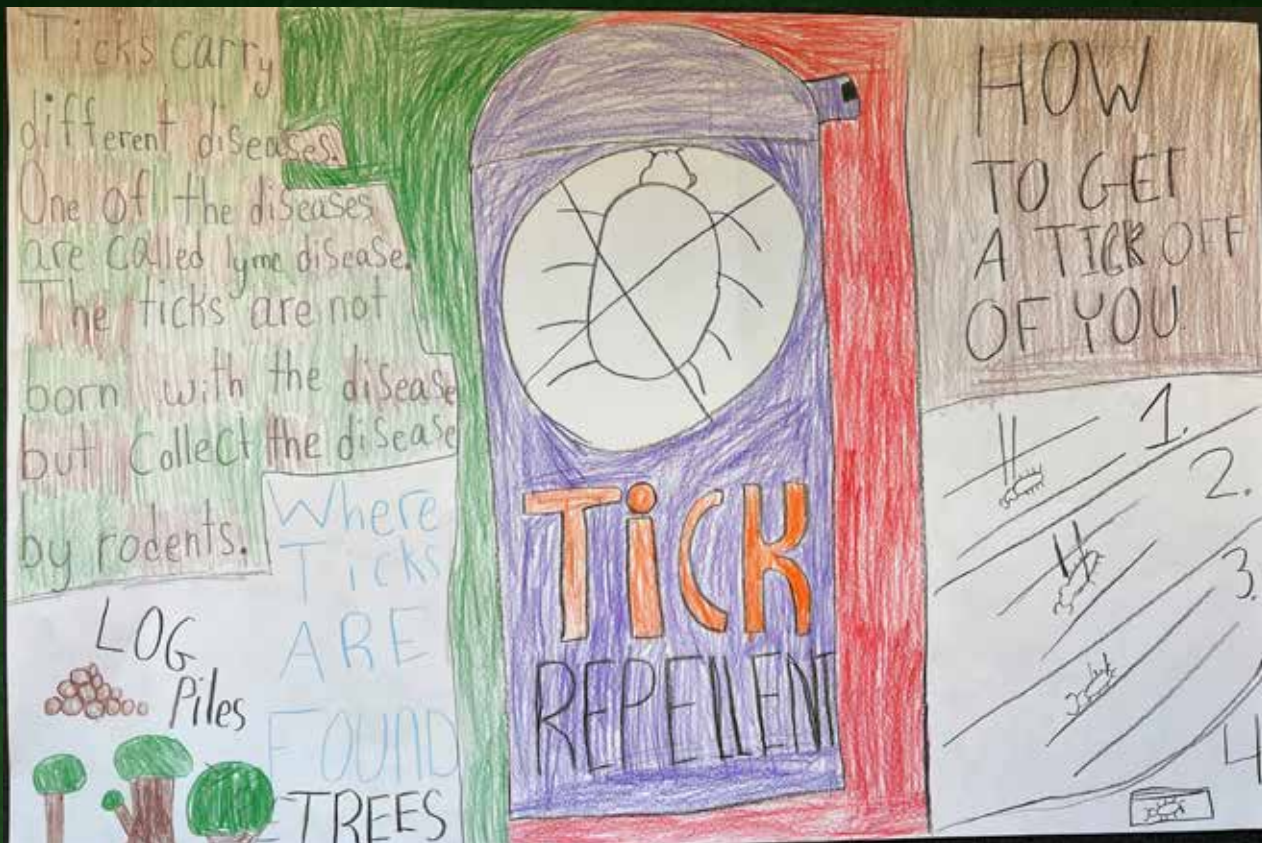 Ticks carry
different diseases.
One of the diseases
are called lyme disease.
The ticks are not
born with the disease
but collect the disease
by rodents.
LOG
Piles
Where
Ticks
ARE
FOUND
TREES
TiCK
REPELLENT
HOW
TO GET
A TICK OFF
OF YOU
1.
2.
3.
4